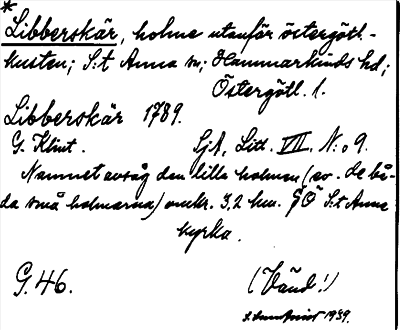 *
Libberskär, holme utanför östergötl.-
kusten; S:t Anna sn; Hammarkinds hd;
Östergötl. l.
Libberskär 1789.
G. Klint. SjA, Litt. VII. N:o 9.
Namnet avsåg den lille holmen (av de bå-
da små holmarna) omkr. 3,2 km. S̈Ö S:t Anna
kyrka.
G. 46. (Vänd!)
1939.